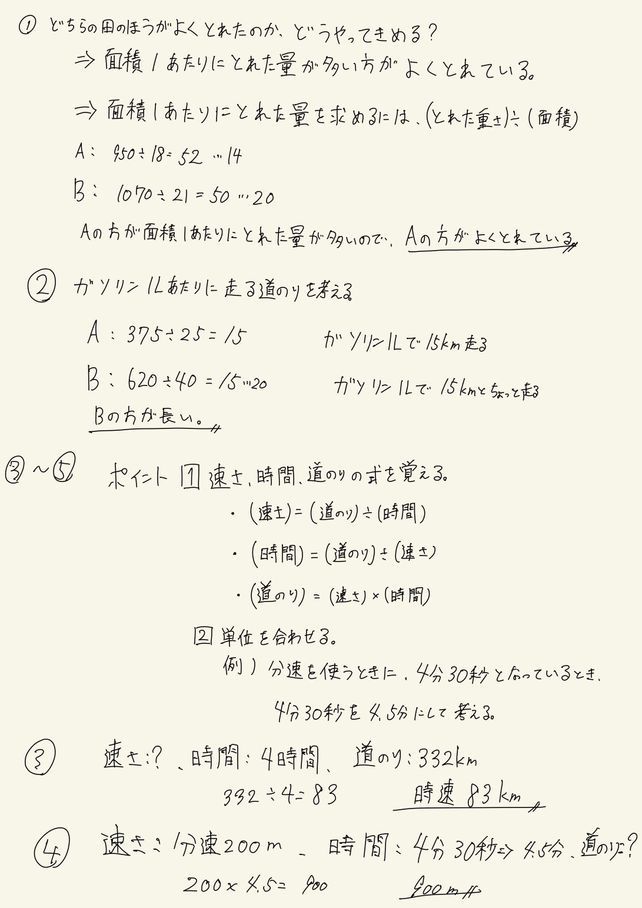 ① どちらの田のほうがよくとれたのか、どうやってきめる?
⇒ 面積1あたりにとれた量が多い方がよくとれている。
⇒ 面積1あたりにとれた量を求めるには、(とれた重さ)÷(面積)
A: 950÷18=52…14
B: 1070÷21=50…20
Aの方が面積1あたりにとれた量が多いので、Aの方がよくとれている。
② ガソリン1Lあたりに走る道のりを考える
A: 375÷25=15 ガソリン1Lで15km走る
B: 620÷40=15…20 ガソリン1Lで15kmとちょっと走る
Bの方が長い。
③~⑤ ポイント 1 速さ、時間、道のりの式を覚える。
・(速さ)=(道のり)÷(時間)
・(時間)=(道のり)÷(速さ)
・(道のり)=(速さ)×(時間)
2 単位を合わせる。
例) 分速を使うときに、4分30秒となっているとき、
4分30秒を4.5分にして考える。
③ 速さ:?、時間:4時間、道のり:332km
332÷4=83 時速83km
④ 速さ:分速200m、時間:4分30秒⇒4.5分、道のり:?
200×4.5=900 900m